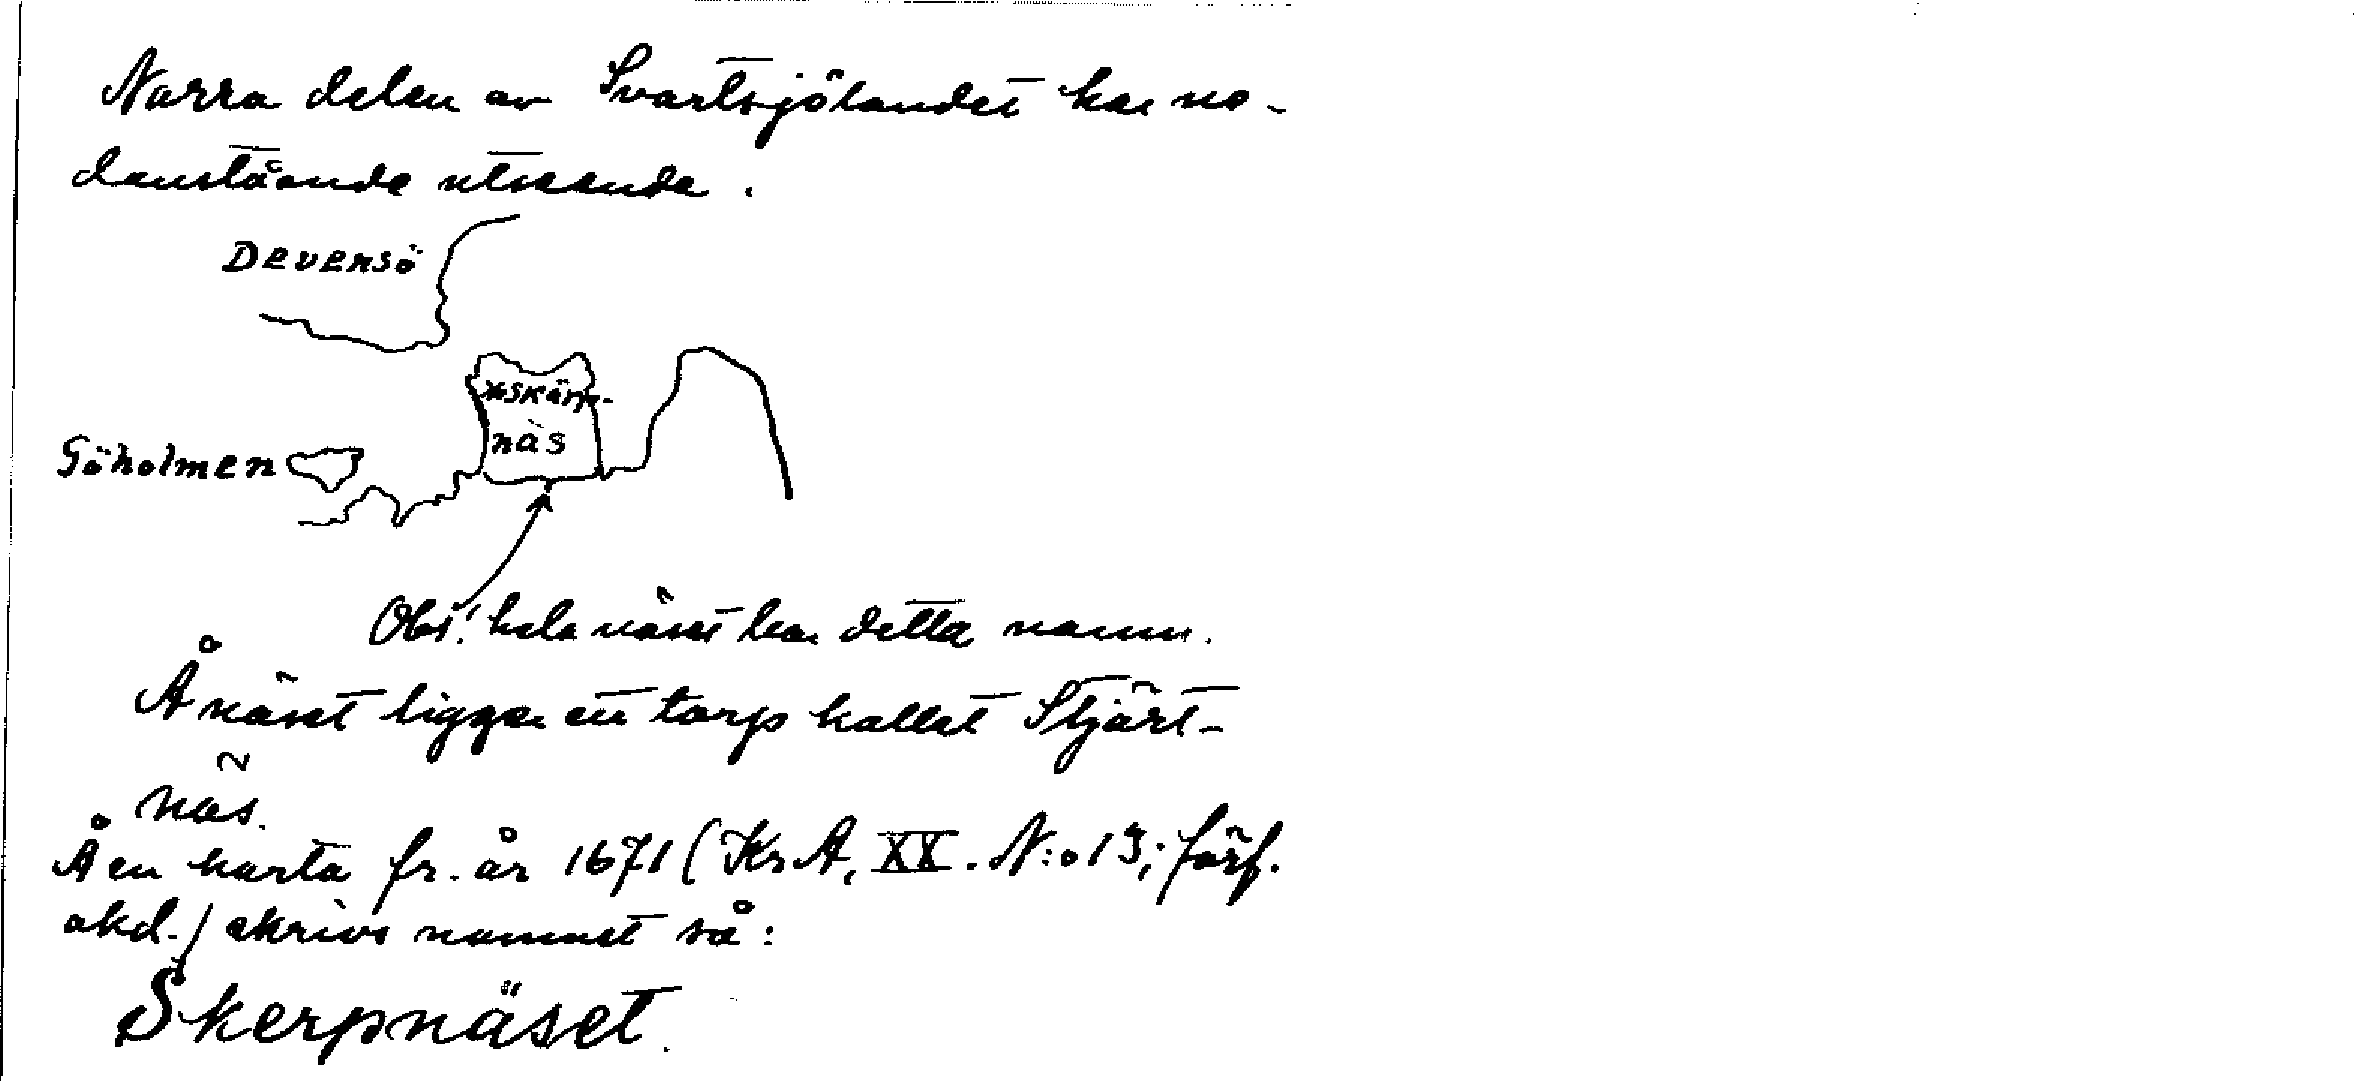 Norra delen av Svartsjölandet har ne-
danstående utseende.
Dävensö
xskärp-
näs
Göholmen
Obs! hela näset har detta namn.
Å näset ligger ett torp kallat Stjärt-
näs.
Å en karta fr. år 1671 (KrA, XX. N:o 13; förf.
okd.) skrivs namnet så:
Skerpnäset.